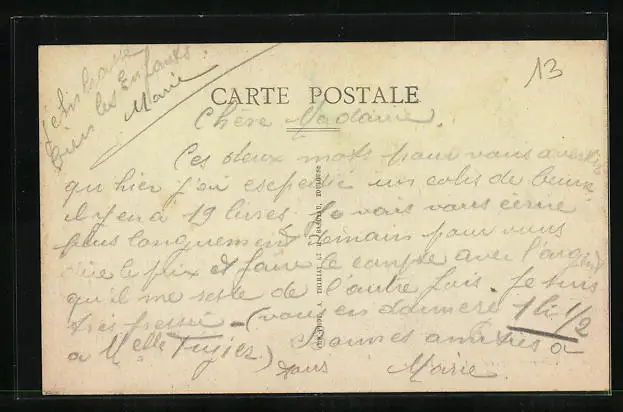 J'embrasse
bien les Enfants.
Marie
13
CARTE POSTALE
Chère Madame.
Ces deux mots pour vous avertir
qu'hier j'ai expedié un colis de beurre
il y en a 19 livres. Je vais vous ecrire
plus longuement demain pour vous
dire le prix et faire le compte avec l'argent
qu'il me reste de l'autre fois. Je suis
très pressée - (vous en donnerez 1 li 1/2
à Melle) Bonnes amitiés à
tous Marie.